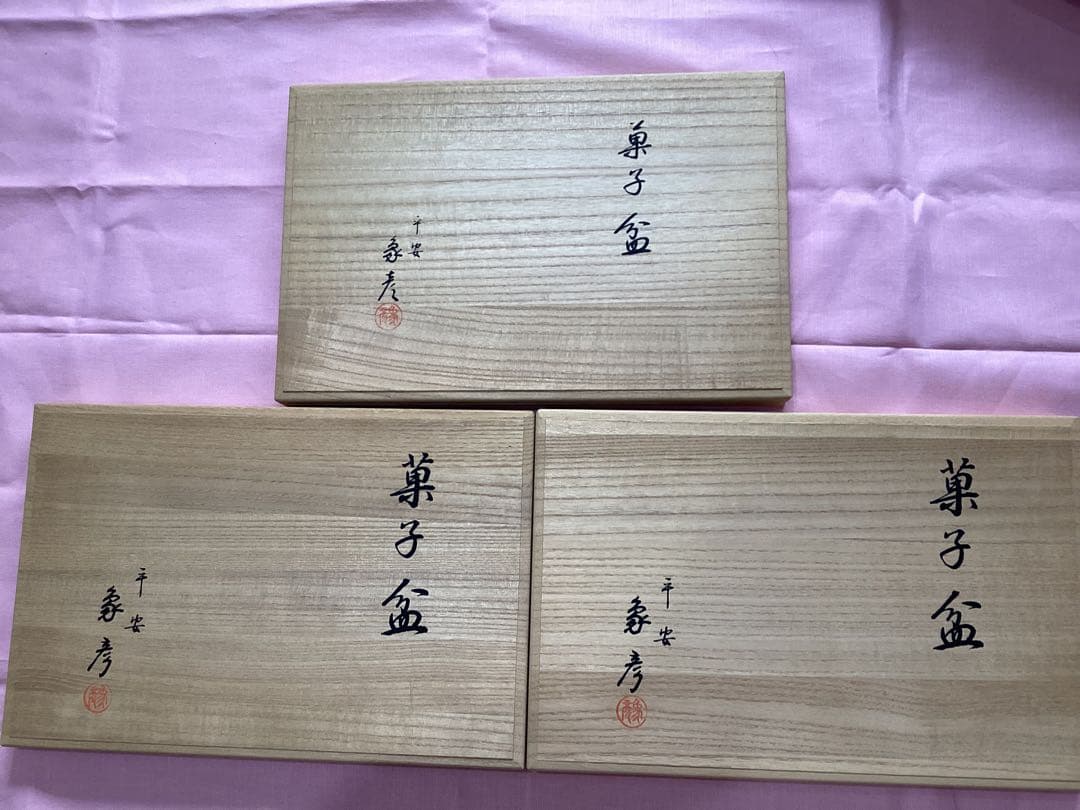 菓子盆
平安
象彦
菓子盆
平安
象彦
菓子盆
平安
象彦